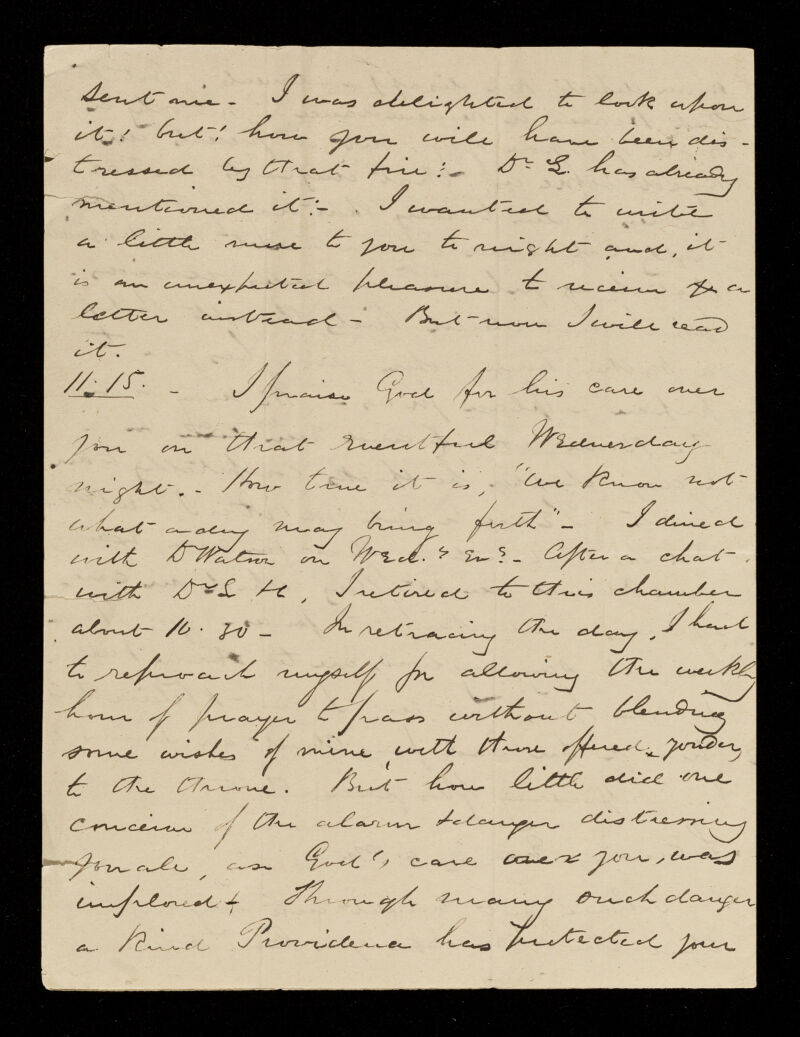 sent me - I was delighted to look upon
it! but! how you will have been dis-
tressed by that fire! - Dr. L. has already
mentioned it! - I wanted to write
a little more to you to night and, it
is an unexpected pleasure to receive a
letter instead - But now I will read
it.
11.15. - I praise God for his care over
you on that eventful Wednesday
night. - How true it is, "We know not
what a day may bring forth" - I dined
with Dr Watson on Wed. - After a chat
with Dr L H, I retired to this chamber
about 10.30 - In retracing the day, I had
to reproach myself for allowing the weekly
hour of prayer to pass without blending
some wishes of mine, with those offered, yonder,
to the throne. But how little did one
conceive of the alarm & danger distressing
you all, as God's care over you, was
implored. Through many such danger
a Kind Providence has protected your